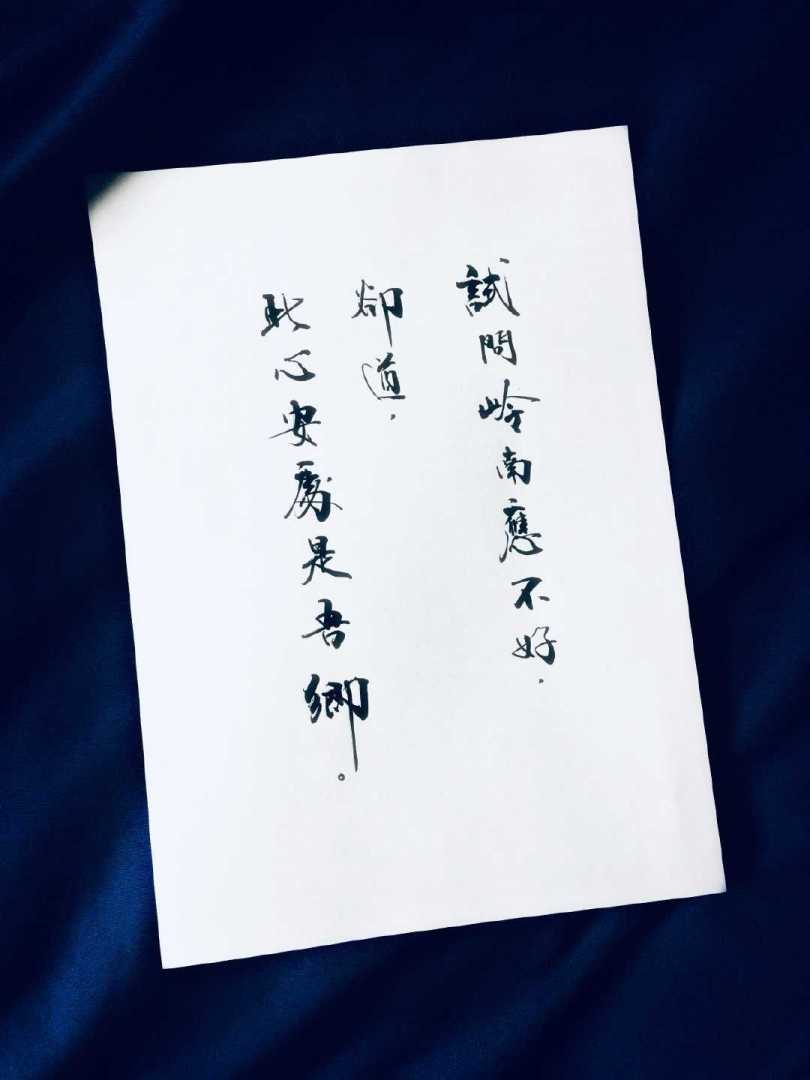 試問岭南應不好，
卻道，
此心安處是吾鄉。